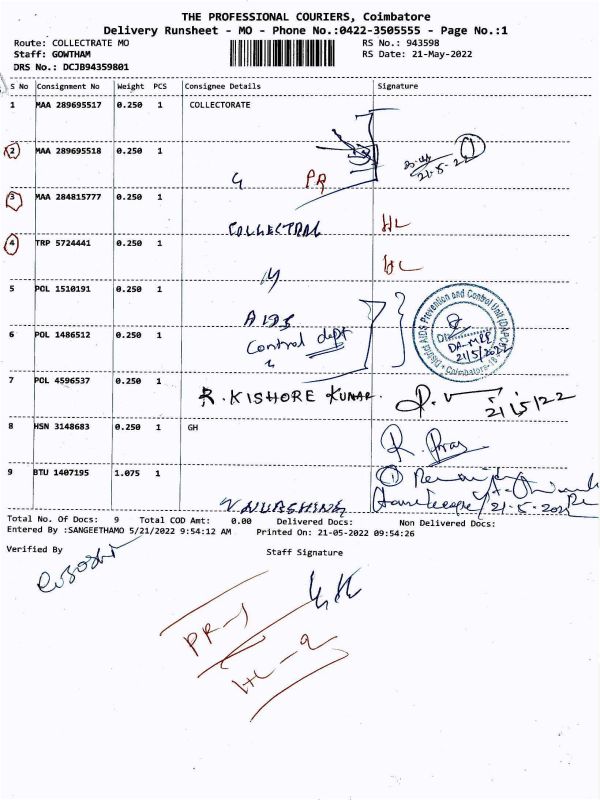 THE PROFESSIONAL COURIERS, Coimbatore
Delivery Runsheet - MO - Phone No.:0422-3505555 - Page No.:1
Route: COLLECTRATE MO RS No.: 943598
Staff: GOWTHAM RS Date: 21-May-2022
DRS No.: DCJB94359801
S No Consignment No Weight PCS Consignee Details Signature
1 MAA 289695517 0.250 1 COLLECTORATE
2 MAA 289695518 0.250 1
21-5-22 1
PR
3 MAA 284815777 0.250 1
COLLECTRAL HL
4 TRP 5724441 0.250 1
HL
5 POL 1510191 0.250 1
AIDS
District AIDS Prevention and Control Unit (DAPCU)
6 POL 1486512 0.250 1
Control dept
21/5/2022
Coimbatore-18
7 POL 4596537 0.250 1
R. KISHORE KUMAR
21/5/22
8 HSN 3148683 0.250 1 GH
9 BTU 1407195 1.075 1
1
21-5-2022
Total No. Of Docs: 9 Total COD Amt: 0.00 Delivered Docs: Non Delivered Docs:
Entered By :SANGEETHAMO 5/21/2022 9:54:12 AM Printed On: 21-05-2022 09:54:26
Verified By Staff Signature
PR-1
HL-2